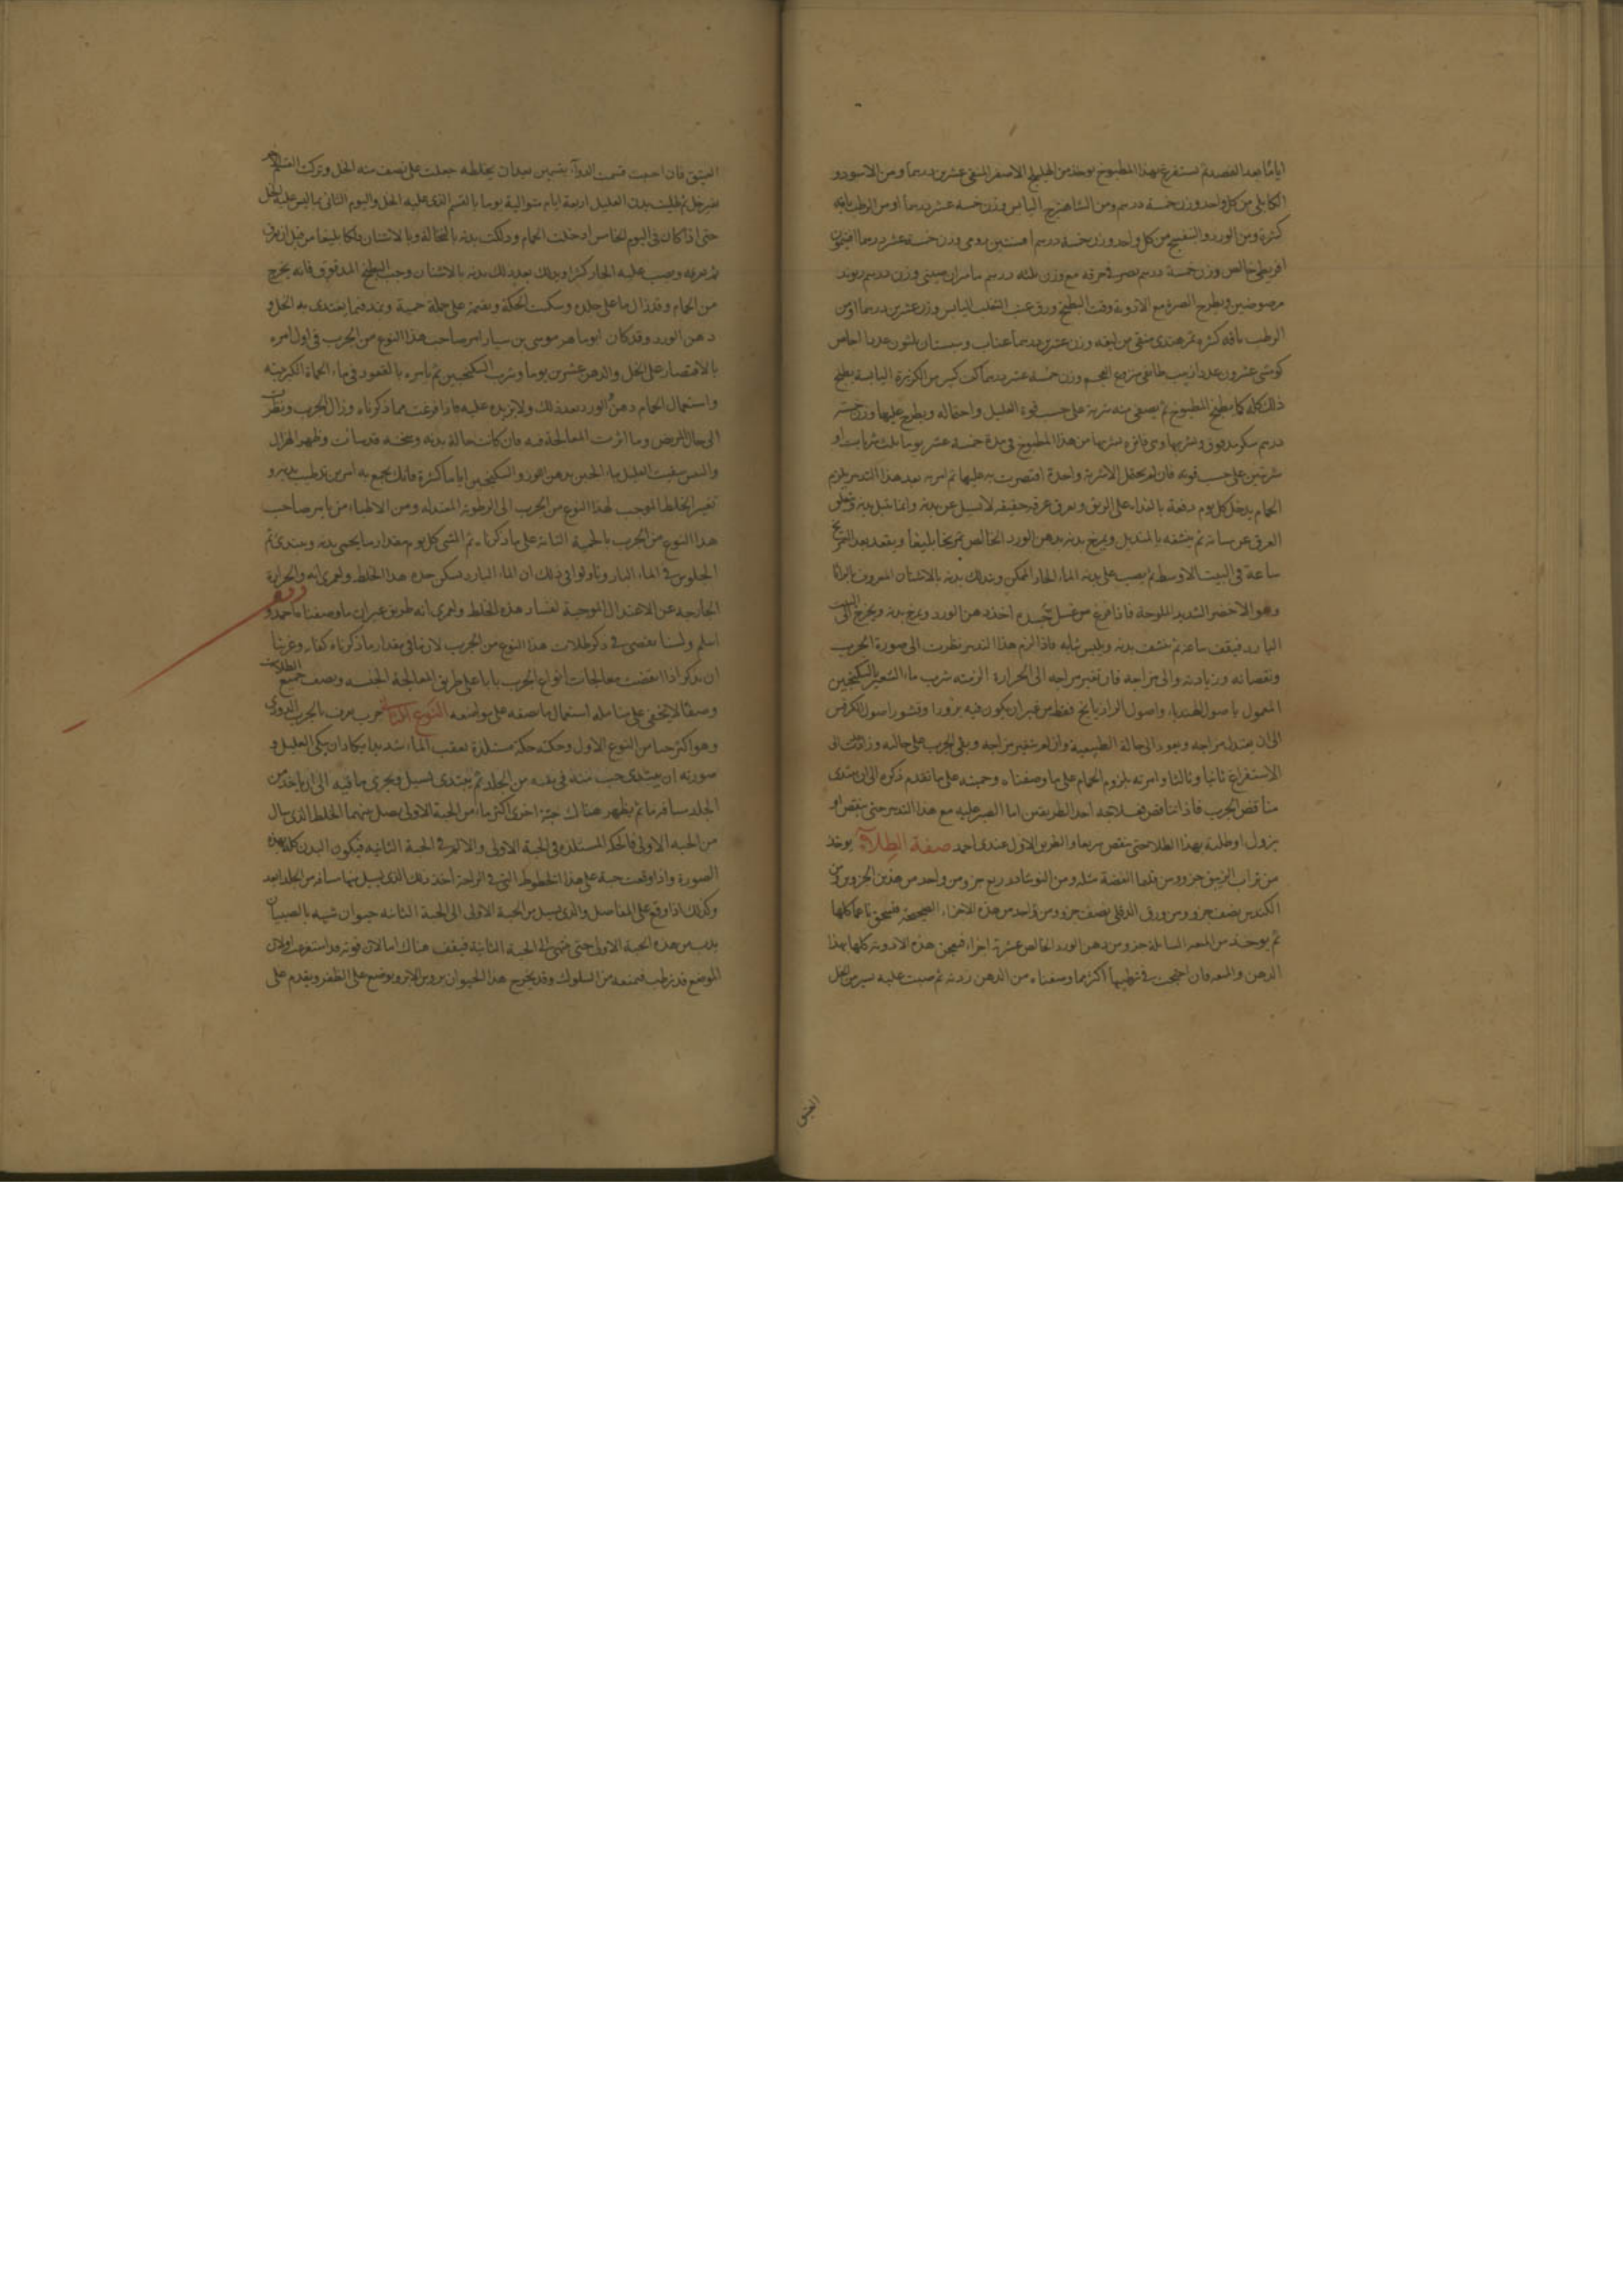 اياما بعد الفصد ثم يستفرغ بهذا المطبوخ يوخذ من الهليلج الاصفر المنقى عشرين درهما ومن الاسود و
الكابلى من كل واحد وزن خمسة درهم ومن الشاهترج اليابس وزن خمسة عشر درهما او من الرطب باقة
كبيرة ومن الورد والبنفسج من كل واحد وزن خمسة درهم افسنتين رومى وزن خمسة عشر درهما افيثمون
اقريطى خالص وزن خمسة درهم يصر فى خرقة مع وزن ثلثه درهم ماميران صينى وزن درهم ريوند
مرضوضين ويطرح الصرة مع الادوية وقت الطبخ ورق عنب الثعلب اليابس وزن عشرين درهما او من
الرطب باقة كبيرة تمر هندى منقى من ليفه وزن عشرين درهما عناب وسبستان ثلثون عددا اجاص
عشرون عددا زبيب طائفى منزوع العجم وزن خمسة عشر درهما كف كبير من الكزبرة اليابسة يطبخ
ذلك كله كما يطبخ المطبوخ ثم يصفى منه شربة على حسب قوة العليل واحتماله ويطرح عليها وزن خمسة
درهم سكر مدقوق ويشربها وهى فاترة يشربها من هذا المطبوخ فى مدة خمسة عشر يوما ثلث شربات او
شربتين على حسب قوته فان لم يحتمل الا شربة واحدة اقتصرت به عليها ثم امرته بعد هذا التدبير يلزم
الحمام يدخل كل يوم دفعة بالغداة على الريق ويعرق عرقا خفيفا لا يسيل عن بدنه وانما تبتل بدنه
العرق عن مسامه ثم ينشفه بالمنديل ويمرخ بدنه بدهن الورد الخالص تمريخا بليغا ويقعد بعد التمريخ
ساعة فى البيت الاوسط ثم يصب على بدنه الماء الحار الممكن ويدلك بدنه بالاشنان المعروف
وهو الاخضر الشديد الملوحة فاذا فرغ من غسل جسده اخذ دهن الورد ويمرخ بدنه ويخرج الى البيت
البارد فيقف ساعة ثم ينشف بدنه ويلبس ثيابه فاذا لزم هذا التدبير نظرت الى صورة الجرب
ونقصانه وزيادته والى مزاجه فان تغير مزاجه الى الحرارة الزمته شرب ماء الشعير بالسكنجبين
المعمول باصول الهندباء واصول الرازيانج فقط من غير ان يكون فيه بزورا وقشور اصول الكرفس
الى ان يعتدل مزاجه ويعود الى حالة الطبيعية وان لم يتغير مزاجه وبقى الجرب على حاله
الاستفراغ ثانيا وثالثا وامرته بلزوم الحمام على ما وصفناه وحميته على ما تقدم ذكره الى ان يبتدى
يتناقص الجرب فاذا تناقص فعلاجه احد الطريقين اما الصبر عليه مع هذا التدبير حتى ينقص او
يزول او طليته بهذا الطلا حتى ينقص سريعا والطريق الاول عندى احمد صفة الطلاء يوخذ
من تراب الزيبق جزو ومن الفضة مثله ومن النوشادر ربع جزو من واحد من هذين الجزوين ومن
الكندس نصف جزو ومن ورق الدفلى نصف جزو من واحد من هذه الاجزاء الصحيحة فيسحق ناعما كلها
ثم يوخذ من الميعه السايلة جزو ومن دهن الورد الخالص عشرة اجزاء فيعجن هذه الادوية كلها بهذا
الدهن والميعه فان احتجت فى ترطيبها اكثر مما وصفناه من الدهن زدته ثم صببت عليه يسير من الخل
العتيق
العتيق فان احببت قسمت الدواء بقسمين بعد ان يخلطه جعلت على نصف منه الخل وتركت القسم الاخر
بغير خل ثم طليت بدن العليل اربعة ايام متوالية يوما بالقسم الذى عليه الخل واليوم الثانى بما ليس عليه الخل
حتى اذا كان فى اليوم الخامس ادخلت الحمام ودلكت بدنه بالنخالة وبالاشنان دلكا بليغا من قبل ان يعرق
ثم يعرقه ويصب عليه الحار كثيرا وبدلك بعد ذلك بدنه بالاشنان وحب البطيخ المدقوق فانه يخرج
من الحمام وقد زال ما على جلده وسكنت الحكة ويقيمه على جملة حمية ويزيد فيما يغتدى به الخل و
دهن الورد وقد كان ابو ماهر موسى بن سيار يامر صاحب هذا النوع من الجرب فى اول امره
بالاقتصار على الخل والدهن عشرين يوما وشرب السكنجبين ثم يامره بالقعود فى ماء الحماة الكبريتية
واستعمال الحمام دهن الورد بعد ذلك ولا يزيده عليه فاذا فرغت مما ذكرناه وزال الجرب ونظرت
الى حال المريض وما اثرت المعالجة فيه فان كانت حالة بدنه وسحنته قد ساءت وظهر الهزال
واليبس سقيت العليل ماء الجبن بدهن اللوز والسكنجبين اياما كثيرة فانك تجمع به امرين ترطيب بدنه و
تغير الخلط الموجب لهذا النوع من الجرب الى الرطوبة المعتدلة ومن الاطباء من يامر صاحب
هذا النوع من الجرب بالحمية التامة على ما ذكرنا ثم المشى كل يوم مقدار ما يحمى بدنه ويبتدى ثم
الجلوس فى الماء البارد وتاولوا فى ذلك ان الماء البارد يسكن حدة هذا الخلط والحرارة
الخارجة عن الاعتدال الموجبة لفساد هذه الخلط ولعمرى انه طريق غير ان ما وصفنا ه احمد و
اسلم ولسنا نقصى فى ذكر طلاءت هذا النوع من الجرب لان ما فى مقدار ما ذكرناه كفاء وعزمنا
ان نذكر اذا انقضت معالجات انواع الجرب بابا على طريق المعالجة ونصف جميع الطلاءت
وصفا لا يخفى على متامله استعمال ما نصفه على مواضعه النوع الثانى جرب يعرف بالجرب الدودى
وهو اكثر حبا من النوع الاول وحكته حكة مستلذة يعقب الما شديدا يكاد ان يبكى العليل و
صورته ان يبتدى حب منه فى بدنه من الجلد ثم يبتدى يسيل ويجرى ما فيه الى ان ياخذ من
الجلد مسافة ما ثم يظهر هناك حبة اخرى اكثر ماء من الحبة الاولى يصل بينهما الخلط الذى سال
من الحبه الاولى فالحكة المستلذه فى الحبة الاولى والالم فى الحبة الثانيه فيكون البدن كله بهذه
الصورة واذا وقعت حبة على هذا الخطوط التى فى الراحة اخذ ذلك الذى يسيل منها مسافة من الجلد
وكذلك اذا وقع على المفاصل والذى يسيل من الحبة الاولى الى الحبة الثانيه حيوان شبيه بالصيبان
يدب من هذه الحبة الاولى حتى ينتهى الى الحبة الثانية فيقف هناك اما لان قوته قد استفرغت او لان
الموضع قد ترطب فيمنعه من السلوك وقد يخرج هذا الحيوان بروس الابر ويوضع على الظفر ويقدم على